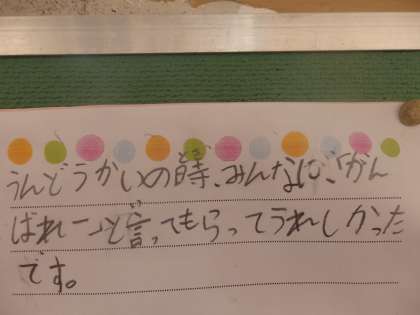 うんどうかいの時、みんなに、「がん
ばれー」と言ってもらってうれしかった
です。